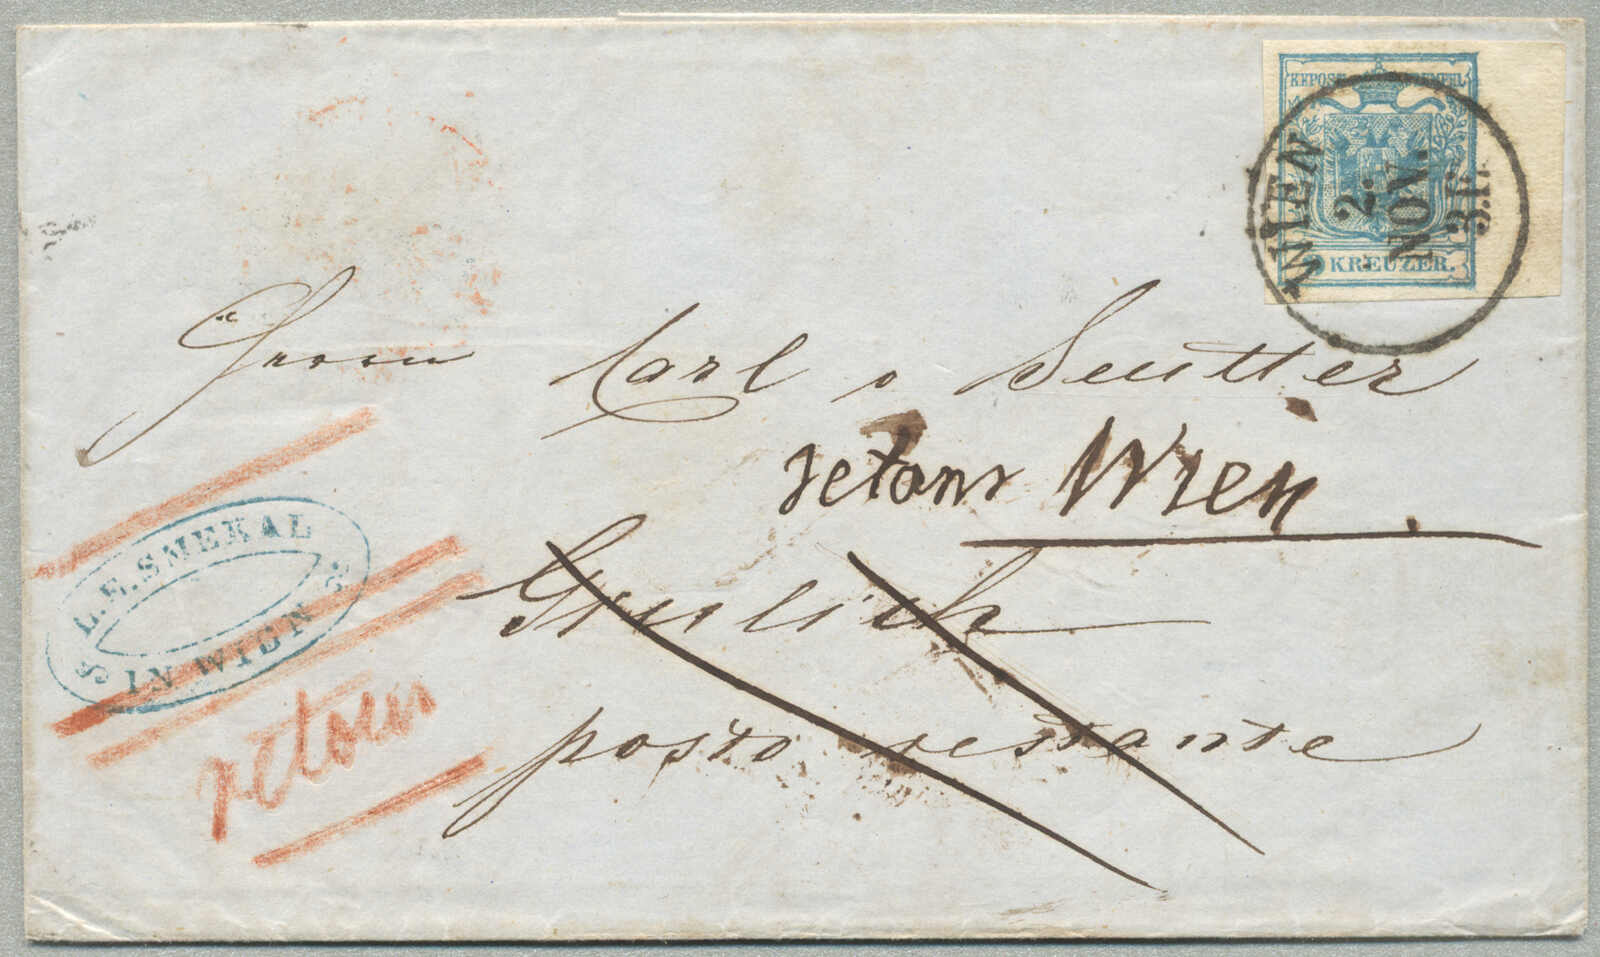 KKPOST-STEMPEL
9 KREUZER.
WIEN
2.
NOV.
3.E.
Herrn Carl v Seutter
retour Wien.
posto restante
S. L. E. SMEKAL
IN WIEN
retour